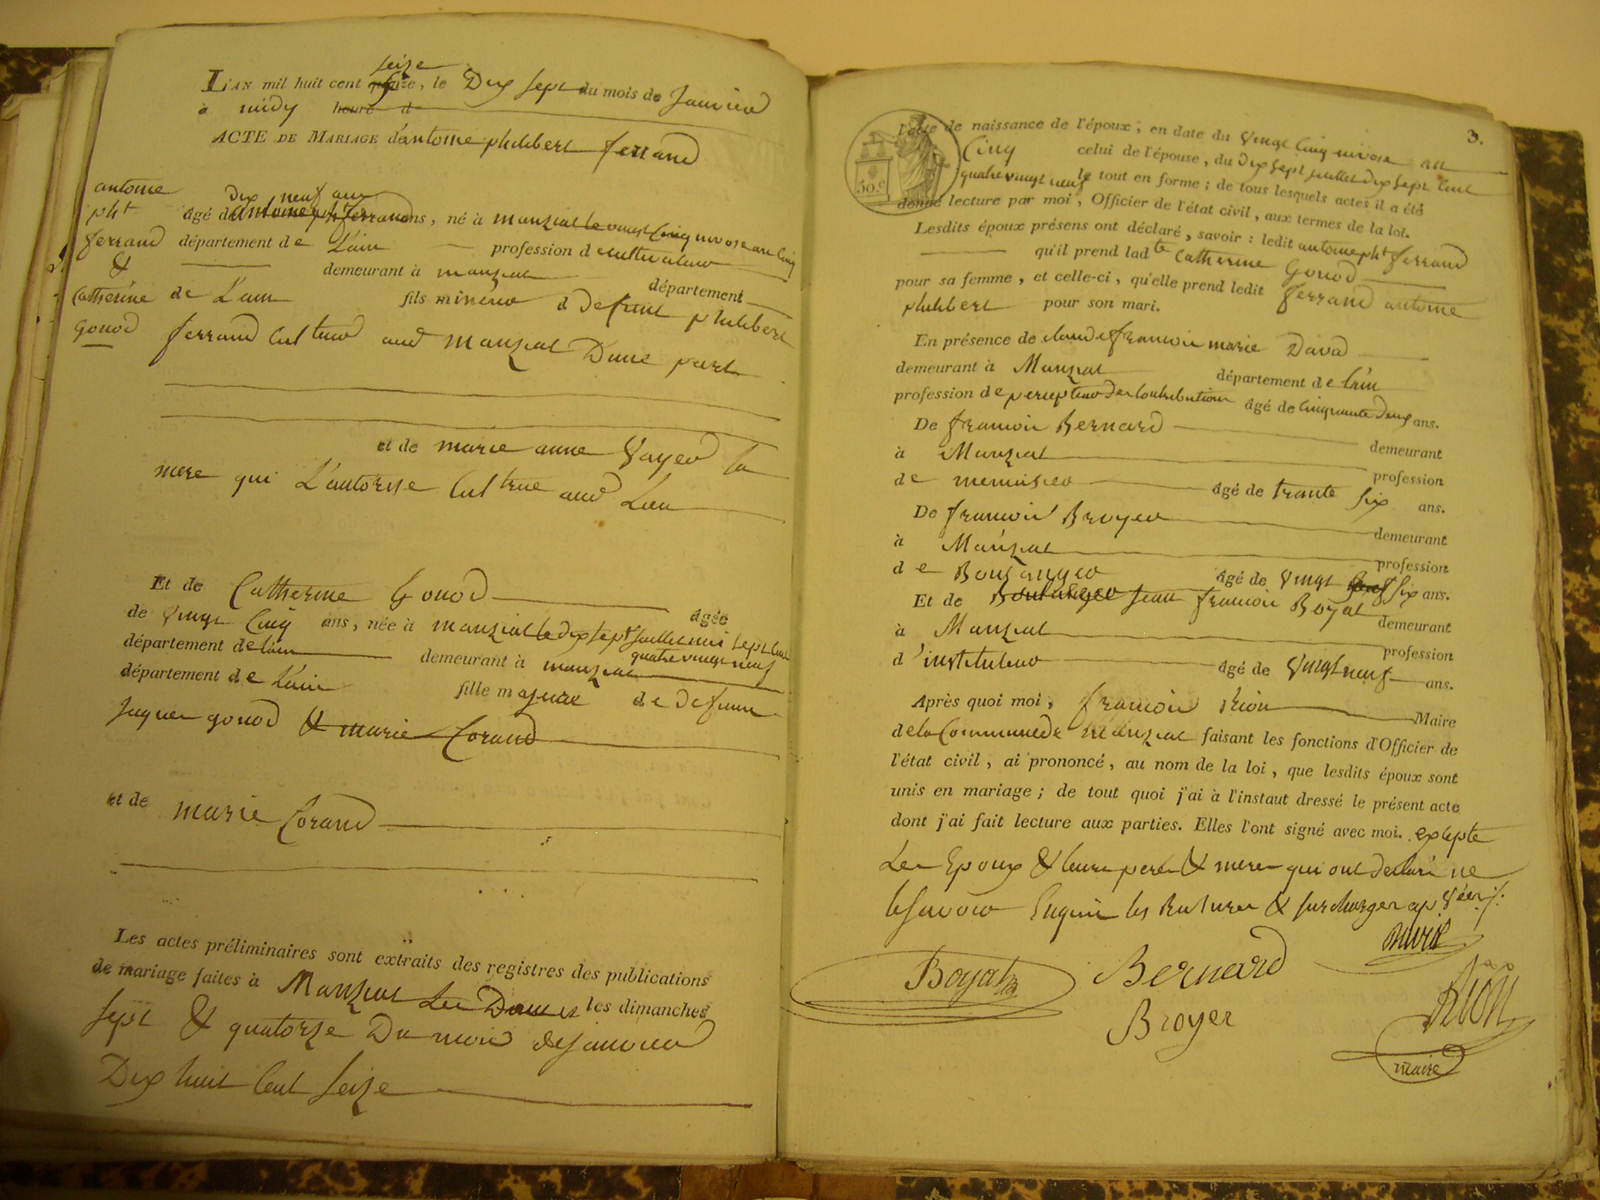 seize
L'AN mil huit cent quinze, le Dix sept du mois de Janvier
à midy heure d
ACTE DE MARIAGE d'antoine philibert ferrand
antoine
pht
ferrand
&
Catherine
Gonod
Dix neuf ans
âgé d antoine pht ferrand ans, né à manziat le vingt Cinq nivose an Cinq
département de L'ain profession d cultivateur
demeurant à manziat département
de L'ain fils mineur d defunt philibert
ferrand Cultiveur aud manziat Dune part
et de marie anne Vayer sa
mere qui L'autorise Cultive aud Lieu
Et de Catherine Gonod agée
de Vingt Cinq ans, née à manziat le dix sept Juillet mil sept Cent
quatre vingt neuf
département de L'ain demeurant à manziat
département de L'ain fille majeure de defunt
Jaques gonod & marie Corand
et de marie Corand
Les actes préliminaires sont extraits des registres des publications
de mariage faites à Manziat Les Deux les dimanches
sept & quatorze Du mois de Janvier
Dix huit Cent seize
3.
50.c
l'acte de naissance de l'époux, en date du Vingt Cinq nivose an
Cinq celui de l'épouse, du dix sept juillet dix sept Cent
quatre vingt neuf le tout en forme; de tous lesquels actes il a été
donné lecture par moi, Officier de l'état civil, aux termes de la loi.
Lesdits époux présens ont déclaré, savoir: ledit antoine pht ferrand
qu'il prend ladte Catherine Gonod
pour sa femme, et celle-ci, qu'elle prend ledit ferrand antoine
philibert pour son mari.
En présence de claude françois marie David
demeurant à Manziat département de L'ain
profession de percepteur des Contributions âgé de Cinquante deux ans.
De françois Bernard demeurant
à Manziat profession
de menuisier âgé de trante six ans.
De françois Broyer demeurant
à Manziat profession
de Boulanger âgé de Vingt neuf six ans.
Et de Boulanger Jean françois Boyat demeurant
à Manziat profession
d'instituteur âgé de Vingt neuf ans.
Après quoi moi, françois Rion Maire
de la Commune de Manziat faisant les fonctions d'Officier de
l'état civil, ai prononcé, au nom de la loi, que lesdits époux sont
unis en mariage; de tout quoi j'ai à l'instant dressé le présent acte
dont j'ai fait lecture aux parties. Elles l'ont signé avec moi. excepte
Les Epoux & leurs peres & meres qui ont declaré ne
le savoir Enquis les Ratures & surcharges ap
David
Boyat Bernard
Broyer Rion
maire